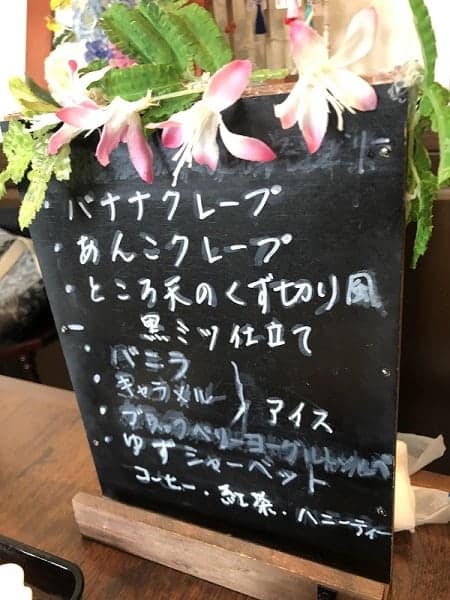 ・バナナクレープ
・あんこクレープ
・ところ天のくず切り風
黒ミツ仕立て
・バニラ
・キャラメル
アイス
・ブラックベリーヨーグルト
・ゆずシャーベット
コーヒー・紅茶・ハニーティー